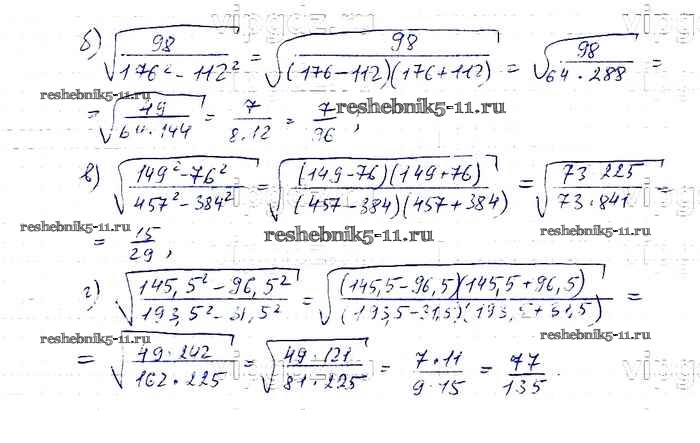 vipgdz.ru
б) √(98/(176² - 112²)) = √(98/((176-112)(176+112))) = √(98/(64·288)) =
reshebnik5-11.ru
= √(49/(64·144)) = 7/(8·12) = 7/96;
reshebnik5-11.ru
в) √((149²-76²)/(457²-384²)) = √((149-76)(149+76)/((457-384)(457+384))) = √(73·225/(73·841)) =
reshebnik5-11.ru
reshebnik5-11.ru
= 15/29;
г) √((145,5²-96,5²)/(193,5²-31,5²)) = √((145,5-96,5)(145,5+96,5)/((193,5-31,5)(193,5+31,5))) =
reshebnik5-11.ru
reshebnik5-11.ru
= √(49·242/(162·225)) = √(49·121/(81·225)) = 7·11/(9·15) = 77/135.